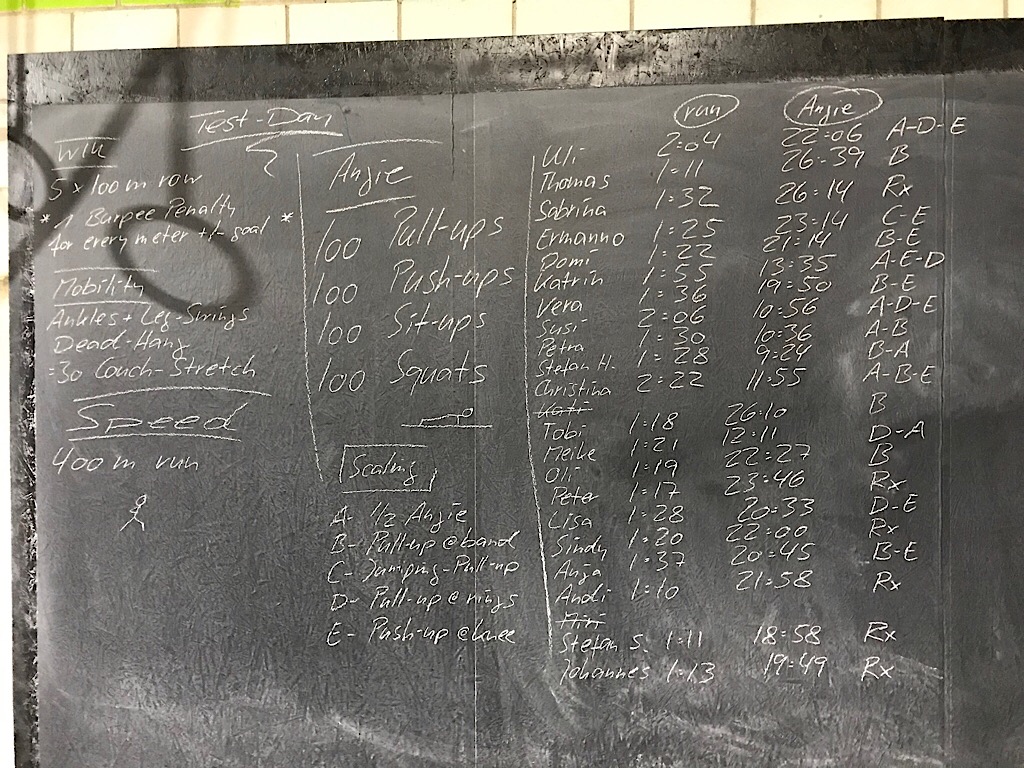 Test-Day
WU
5 x 100m row
* 1 Burpee Penalty *
for every meter +/- goal
Mobility
Ankles + Leg-Swings
Dead-Hang
:30 Couch-Stretch
Speed
400m run
Angie
100 Pull-ups
100 Push-ups
100 Sit-ups
100 Squats
Scaling
A- 1/2 Angie
B- Pull-up @band
C- Jumping-Pull-up
D- Pull-up @rings
E- Push-up @knee
run Angie
Uli 2:04 22:06 A-D-E
Thomas 1:11 26:39 B
Sabrina 1:32 26:14 Rx
Ermanno 1:25 23:14 C-E
Domi 1:22 21:14 B-E
Katrin 1:55 13:35 A-E-D
Vera 1:36 19:50 B-E
Susi 2:06 10:56 A-D-E
Petra 1:30 10:36 A-B
Stefan H. 1:28 9:24 B-A
Christina 2:22 11:55 A-B-E
Tobi 1:18 26:10 B
Meike 1:21 12:11 D-A
Oli 1:19 22:27 B
Peter 1:17 23:46 Rx
Lisa 1:28 20:33 D-E
Sindy 1:20 22:00 Rx
Anja 1:37 20:45 B-E
Andi 1:10 21:58 Rx
Stefan S. 1:11 18:58 Rx
Johannes 1:13 19:49 Rx